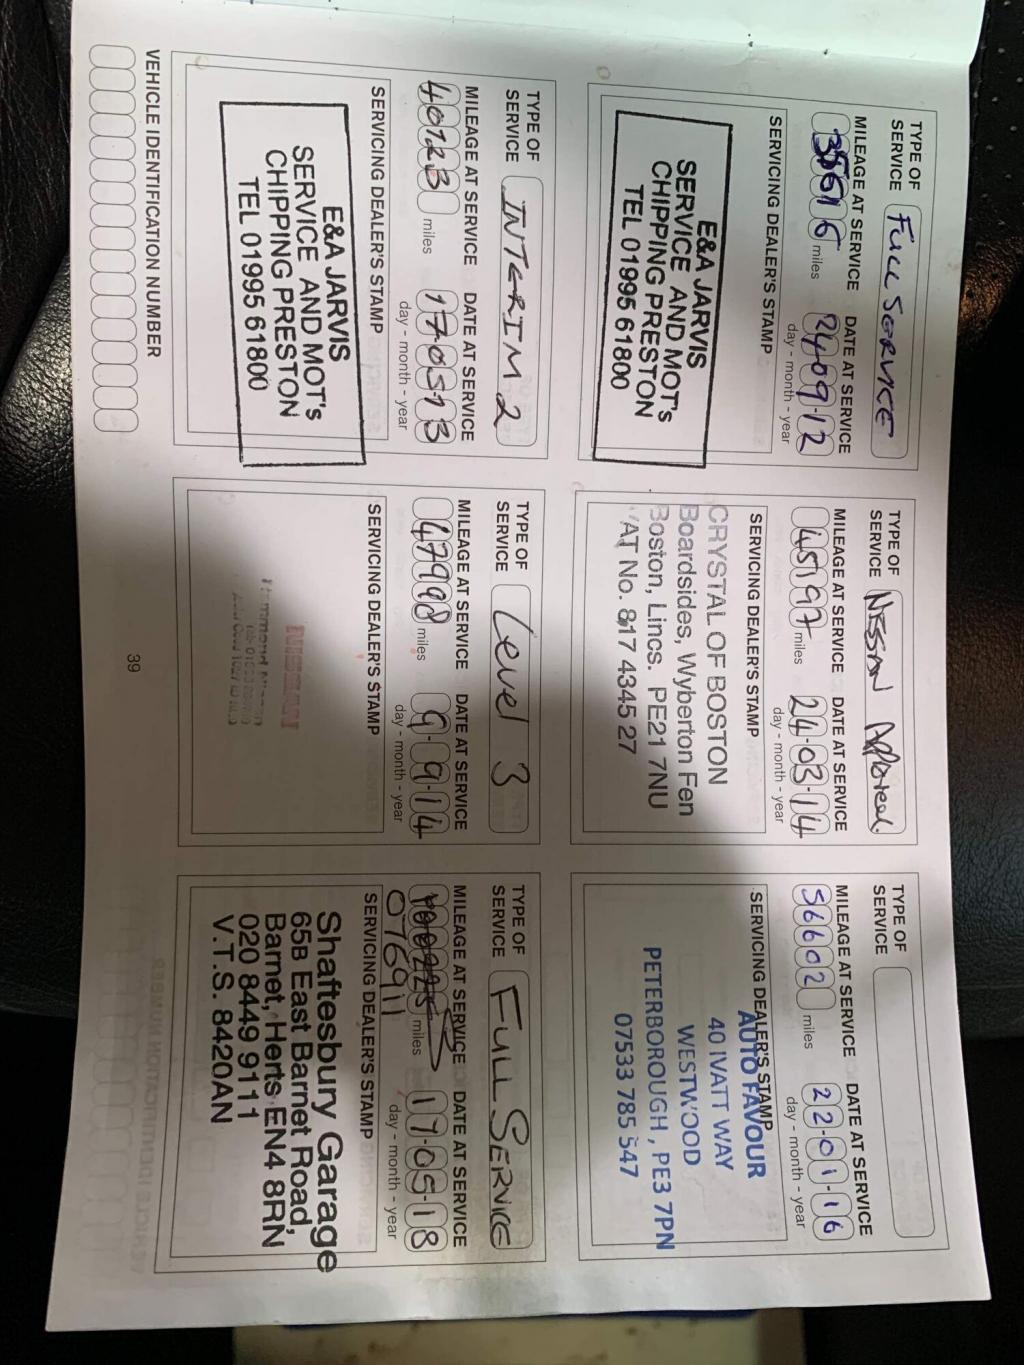 TYPE OF
SERVICE
FULL SERVICE
MILEAGE AT SERVICE
DATE AT SERVICE
miles
24-09-12
day - month - year
SERVICING DEALER'S STAMP
E&A JARVIS
SERVICE AND MOT's
CHIPPING PRESTON
TEL 01995 61800
TYPE OF
SERVICE
NISSAN
MILEAGE AT SERVICE
DATE AT SERVICE
45197
miles
24-03-14
day - month - year
SERVICING DEALER'S STAMP
CRYSTAL OF BOSTON
Boardsides, Wyberton Fen
Boston, Lincs. PE21 7NU
VAT No. 817 4345 27
TYPE OF
SERVICE
MILEAGE AT SERVICE
DATE AT SERVICE
56602
miles
22-01-16
day - month - year
SERVICING DEALER'S STAMP
AUTO FAVOUR
40 IVATT WAY
WESTWOOD
PETERBOROUGH, PE3 7PN
07533 785 547
TYPE OF
SERVICE
INTERIM 2
MILEAGE AT SERVICE
DATE AT SERVICE
40123
miles
17-05-13
day - month - year
SERVICING DEALER'S STAMP
E&A JARVIS
SERVICE AND MOT's
CHIPPING PRESTON
TEL 01995 61800
TYPE OF
SERVICE
Level 3
MILEAGE AT SERVICE
DATE AT SERVICE
47998
miles
9-9-14
day - month - year
SERVICING DEALER'S STAMP
NISSAN
TYPE OF
SERVICE
FULL SERVICE
MILEAGE AT SERVICE
DATE AT SERVICE
miles
17-05-18
day - month - year
076911
SERVICING DEALER'S STAMP
Shaftesbury Garage
65B East Barnet Road,
Barnet, Herts EN4 8RN
020 8449 9111
V.T.S. 8420AN
VEHICLE IDENTIFICATION NUMBER
39